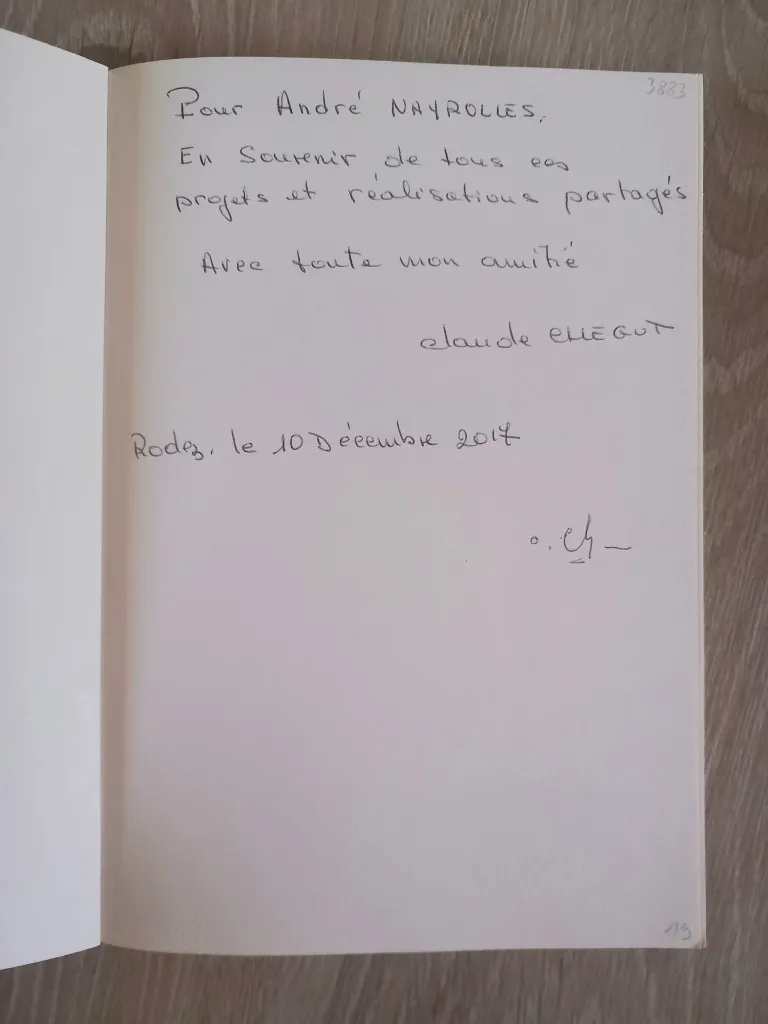 3883
Pour André NAYROLLES,
En Souvenir de tous ces
projets et réalisations partagés
Avec toute mon amitié
Claude
Rodez, le 10 Décembre 2017
19